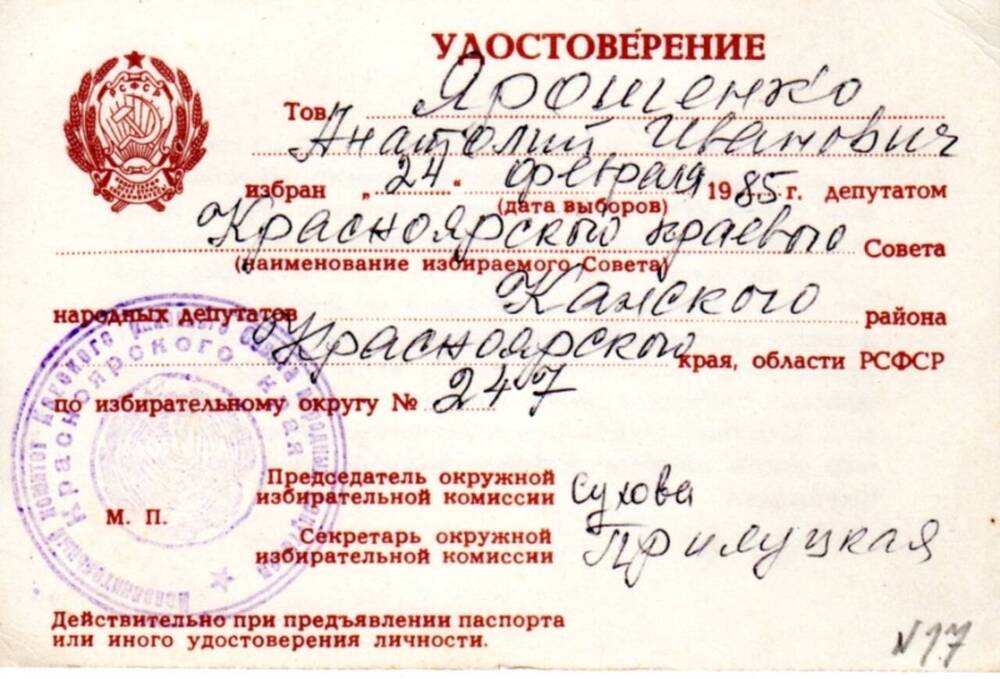 УДОСТОВЕРЕНИЕ
Тов. Ярошенко
Анатолий Иванович
избран „24“ февраля 1985 г. депутатом
(дата выборов)
Красноярского краевого Совета
(наименование избираемого Совета)
народных депутатов Канского района
Красноярского края, области РСФСР
по избирательному округу № 247
Председатель окружной
избирательной комиссии Сухова
М. П.
Секретарь окружной
избирательной комиссии Прилуцкая
Действительно при предъявлении паспорта
или иного удостоверения личности.
N 17
Красноярского края